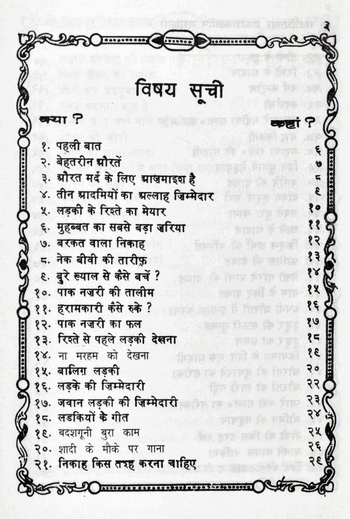 ३
विषय सूची
क्या ? कहां ?
१. पहली बात ६
२. बेहतरीन औरतें ७
३. औरत मर्द के लिए आज़माइश है ८
४. तीन आदमियों का अल्लाह ज़िम्मेदार ९
५. लड़की के रिश्ते का मेयार १०
६. मुहब्बत का सबसे बड़ा ज़रिया ११
७. बरकत वाला निकाह १२
८. नेक बीवी की तारीफ़ १३
९. बुरे ख्याल से कैसे बचें ? १४
१०. पाक नज़री की तालीम १५
११. हरामकारी कैसे रुके ? १६
१२. पाक नज़री का फल १७
१३. रिश्ते से पहले लड़की देखना १८
१४. ना मरहम को देखना १९
१५. बालिग़ लड़की २०
१६. लड़के की ज़िम्मेदारी २२
१७. जवान लड़की की ज़िम्मेदारी २३
१८. लडकियों के गीत २४
१९. बदशगूनी बुरा काम २५
२०. शादी के मौक़े पर गाना २६
२१. निकाह किस तरह करना चाहिए २९